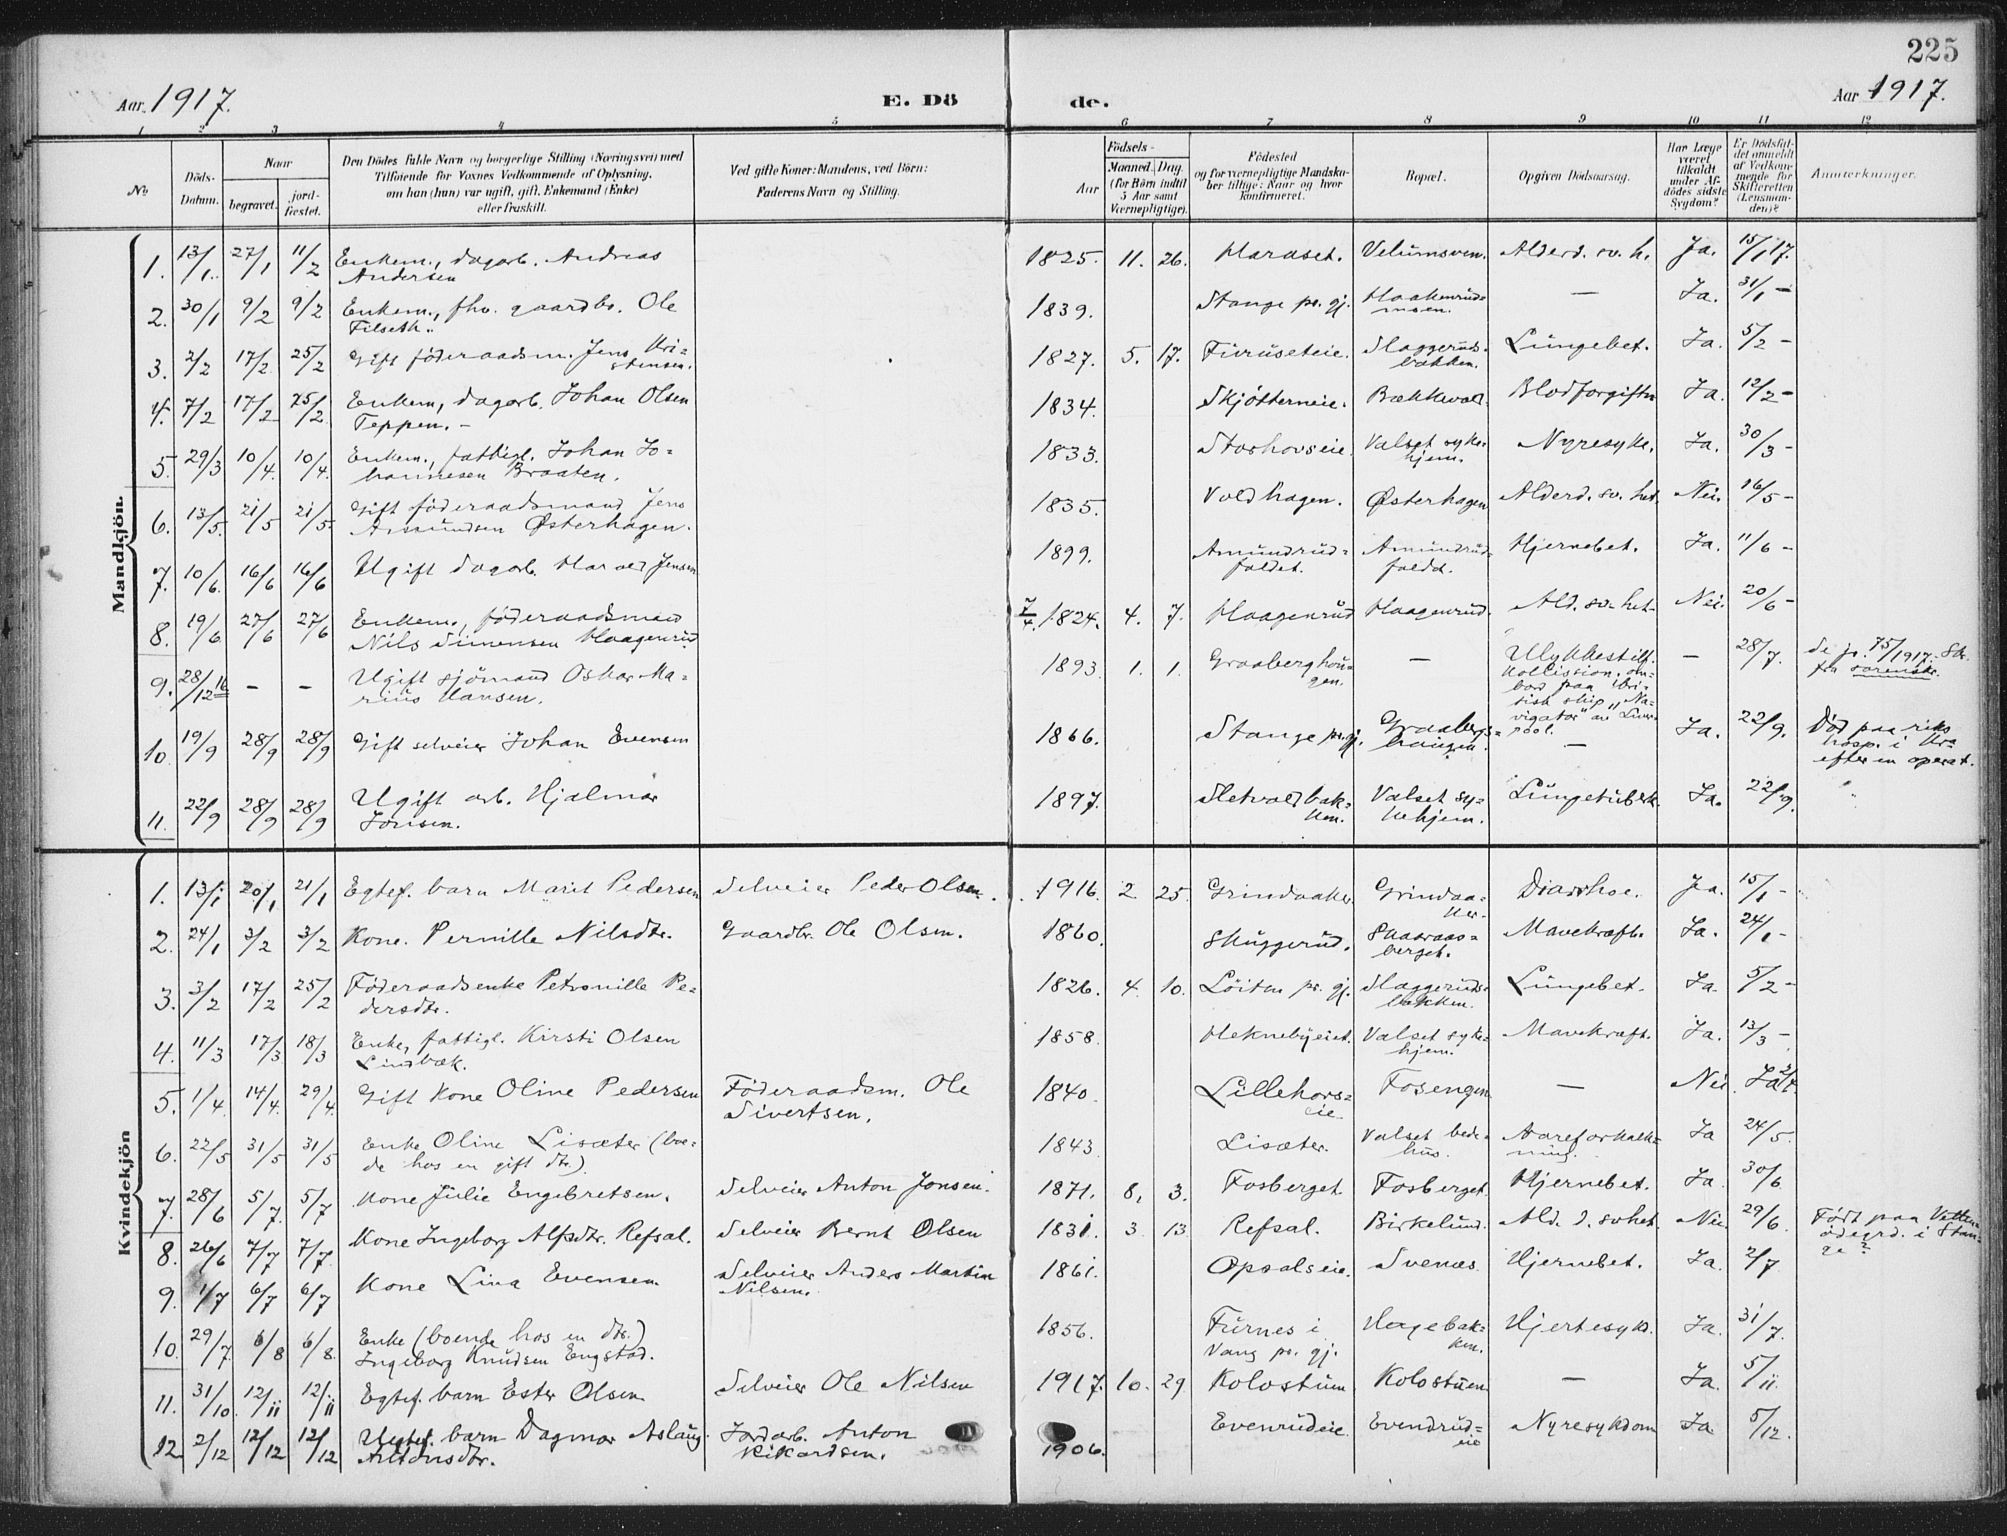 225
Aar 1917. E. Dö de. Aar 1917.
1 2 3 4 5 6 7 8 9 10 11 12
No Döds-Datum. Naar begravet. jord-fæstet. Den Dödes fulde Navn og borgerlige Stilling (Næringsvei) med Tilföiende for Voxnes Vedkommende af Oplysning, om han (hun) var ugift, gift, Enkemand (Enke) eller fraskilt. Ved gifte Koner: Mandens, ved Börn: Faderens Navn og Stilling. Födsels- Aar Maaned. Dag. (for Börn indtil 5 Aar samt Værnepligtige). Födested og for værnepligtige Mandskaber tillige: Naar og hvor konfirmeret. Bopæl. Opgiven Dödsaarsag. Har Læge været tilkaldt under Afdödes sidste Sygdom? Er Dödsfaldet anmeldt af Vedkommende for Skifteretten (Lensmanden)? Anmerkninger.
Mandkjön.
1. 13/1. 27/1 11/2 Enkem., dagarb. Andreas Andersen 1825. 11. 26. Haraset. Velumsven. Alderd. sv. h. Ja. 15/1 17.
2. 30/1 9/2 9/2 Enkem., fhv. gaardbr. Ole Filseth. 1839. Stange pr. gj. Haakenrud- — Ja. 31/1 —
3. 2/2 17/2 25/2 Gift föderaadsm. Jens Kristensen. 1827. 5. 17. Furuseteie. Slaggerudsbakken. Lungebet. Ja. 5/2 —
4. 7/2 17/2 25/2 Enkem., dagarb. Johan Olsen Teppen. — 1834. Skjötterneie. Blodforgiftn Ja. 12/2 —
5. 29/3 10/4. 10/4. Enkem., fattigl. Johan Johannesen Braaten. 1833. Storhovseie. Valset sykehjem. Nyresyke. Ja. 30/3 —
6. 13/5. 21/5 21/5 Gift föderaadsmand Jens Amundsen Østerhagen. 1835. Voldhagen. Østerhagen Alderd. sv. het. Nei. 16/5 —
7. 10/6. 16/6 16/6 Ugift dagarb. Harald Jensen 1899. Amundrudfaldet. Amundrudfaldet. Hjernebet. Ja. 11/6 —
8. 19/6 27/6 27/6 Enkem., föderaadsmand Nils Simensen Haagenrud 7/4. 1824. 4. 7. Haagenrud Haagenrud. Ald. sv. het. Nei. 20/6 —
9. 28/12 16 — — Ugift sjömand Oskar Marius Hansen. 1893. 1. 1. Graaberghougen. — Ulykkestilf. Kollission, ombord paa britisk skip "Navigator" av Liverpool. — 28/7. 75/1917. Sk. fra sorensk.
10. 19/9 28/9 28/9 Gift selveier Johan Evensen 1866. Stange pr. gj. Graabergshaugen. — Ja. 22/9. Död paa rikshosp. i Kra efter en operat.
11. 22/9 28/9 28/9 Ugift arb. Hjalmar Jonsen. 1897. Sletvoldbakken. Valset sykehjem. Lungetuberk. Ja. 22/9.
Kvindekjön
1. 13/1 20/1 21/1 Egtef. barn Marit Pedersen Selveier Peder Olsen. 1916. 2 25. Grindaaker Grindaaker. Diarrhoe. Ja. 15/1 —
2. 24/1 3/2 3/2 Kone. Pernille Nilsdtr. Gaardbr. Ole Olsen. 1860. Skuggerud. Skaaraasberget. Mavekræft. Ja. 24/1 —
3. 3/2 17/2 25/2 Föderaadsenke Petronille Pedersdtr. 1826. 4. 10. Löiten pr. gj. Slaggerudsbakken. Lungebet. Ja. 5/2 —
4. 11/3 17/3 18/3 Enke, fattigl. Kirsti Olsen Lindbæk. 1858. Heknebyeiet. Valset sykehjem. Mavekræft. Ja. 13/3 —
5. 1/4. 14/4. 29/4. Gift Kone Oline Pedersen Föderaadsm. Ole Sivertsen. 1840. Lillehorseie Fosengen — Nei Ja 2/4.
6. 22/5 31/5 31/5 Enke Oline Lisæter (boende hos en gift dtr.) 1843. Lisæter. Valset bedehus. Aareforkalkning. Ja 24/5.
7. 28/6 5/7. 5/7 Kone Julie Engebretsen. Selveier Anton Jonsen. 1871. 8. 3. Fosberget. Fosberget. Hjernebet. Ja. 30/6
8. 26/6 7/7 7/7. Kone Ingeborg Alfsdtr. Refsal. Selveier Bernt Olsen 1831. 3. 13. Refsal. Birkelund. Ald. d. svhet. Nei. 29/6. Födt paa ödegrd. i Stange?
9. 1/7 6/7 6/7 Kone Lina Evensen Selveier Anders Martin Nilsen. 1861. Opsalseie. Svenæs. Hjernebet. Ja. 2/7
10. 29/7. 6/8 6/8. Enke (boende hos en dtr.) Ingeborg Knudsen Engstad. 1856. Furnes i Vang pr. gj. Hagebakken. Hjertesyk. Ja. 31/7.
11. 31/10. 12/11 12/11 Egtef. barn Ester Olsen Selveier Ole Nilsen 1917. 10. 29. Kolostuen Kolostuen. — Ja. 5/11.
12. 2/12 12/12 12/12 Uegtef. barn Dagmar Aslaug Antonsdtr. Jordarb. Anton Rikardsen. 1906. Evenrudeie. Evendrudeie Nyresykdom Ja. 5/12.